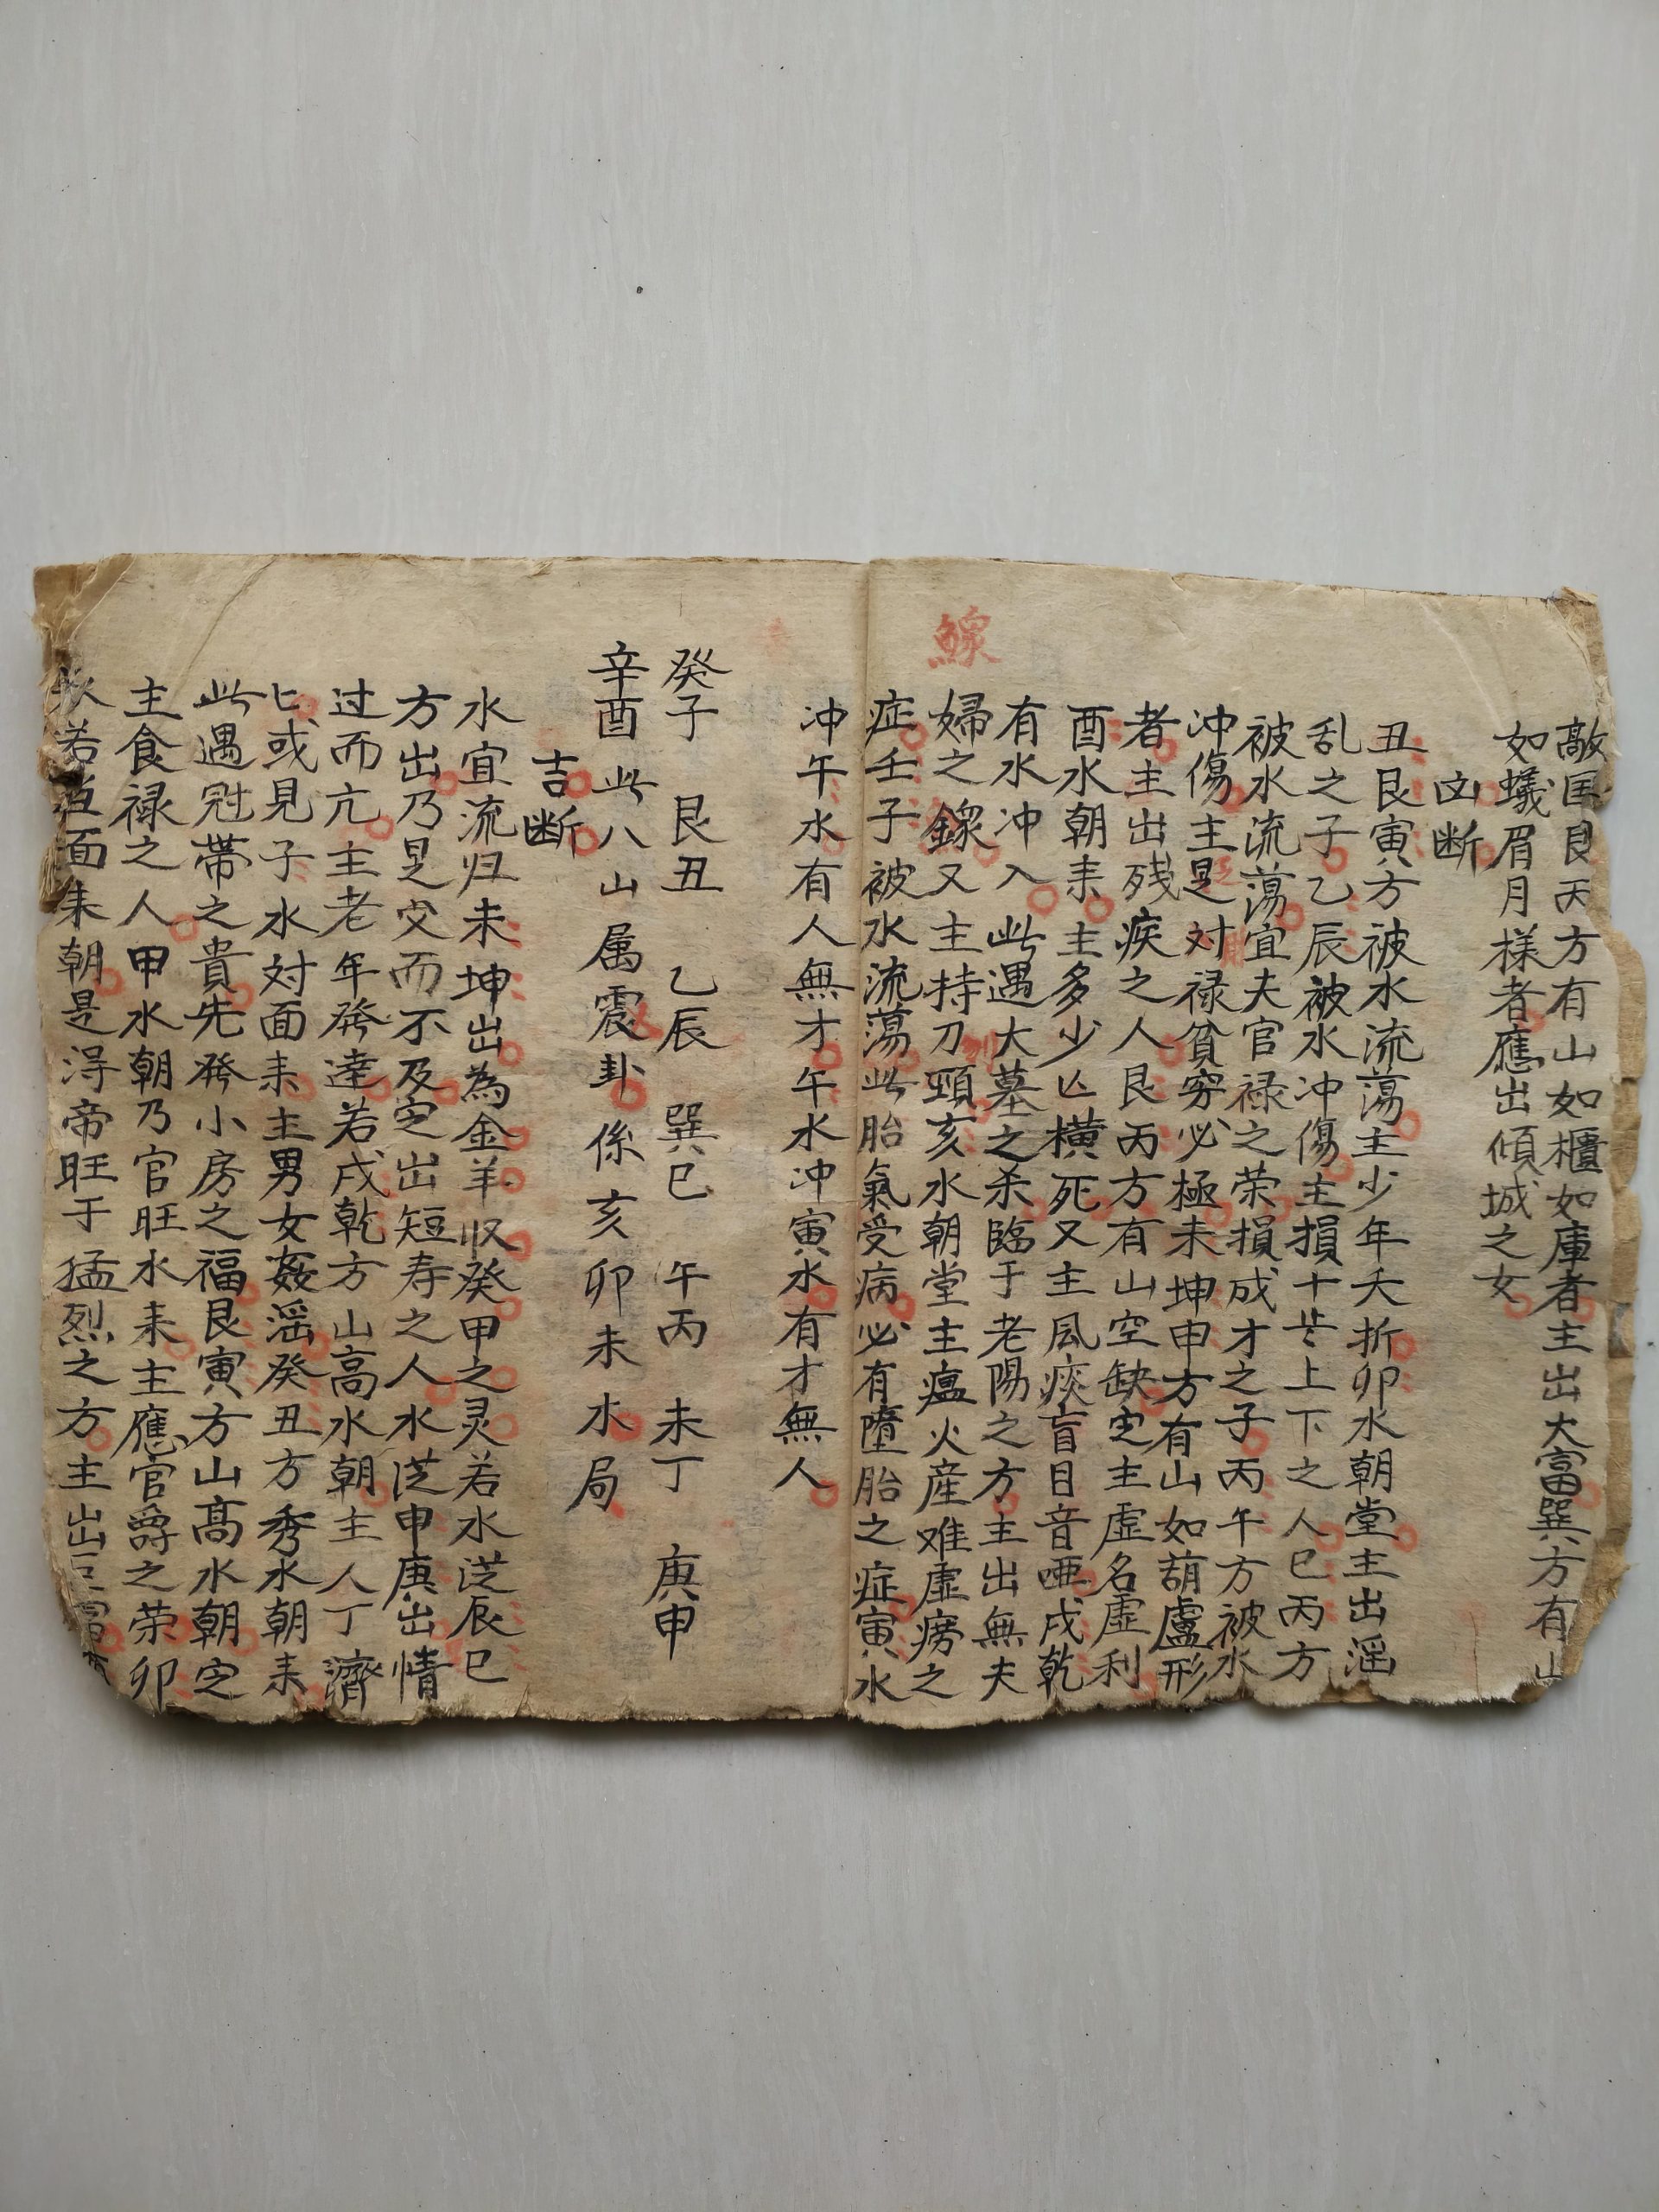 敵国艮丙方有山如櫃如庫者主出大富巽方有山
如蟻眉月様者應出傾城之女
凶断
丑艮寅方被水流蕩主少年夭折卯水朝堂主出滛
乱之子乙辰被水冲傷主損十世上下之人巳丙方
被水流蕩宜夫官禄之荣損成才之子丙午方被水
冲傷主是对禄貧穷必極未坤申方有山如葫盧形
者主出残疾之人艮丙方有山空缺定主虚名虚利
酉水朝来主多少亡横死又主風痰盲目音哑戌乾
有水冲入此遇大墓之杀臨于老陽之方主出無夫
鰥
婦之鎵又主持刀頸亥水朝堂主瘟火産难虚痨之
症壬子被水流蕩此胎氣受病必有墮胎之症寅水
冲午水有人無才午水冲寅水有才無人
癸子 艮丑 乙辰 巽巳 午丙 未丁 庚申
辛酉此八山属震卦係亥卯未水局
吉断
水宜流归未坤出為金羊収癸甲之灵若水从辰巳
方出乃是交而不及定出短寿之人水从申庚出情
过而亢主老年發達若戌乾方山高水朝主人丁濟
匕或見子水对面来主男女姦滛癸丑方秀水朝来
此遇冠帶之貴先發小房之福艮寅方山高水朝定
主食禄之人甲水朝乃官旺水来主應官爵之荣卯
水若当面来朝是得帝旺于猛烈之方主出巨富